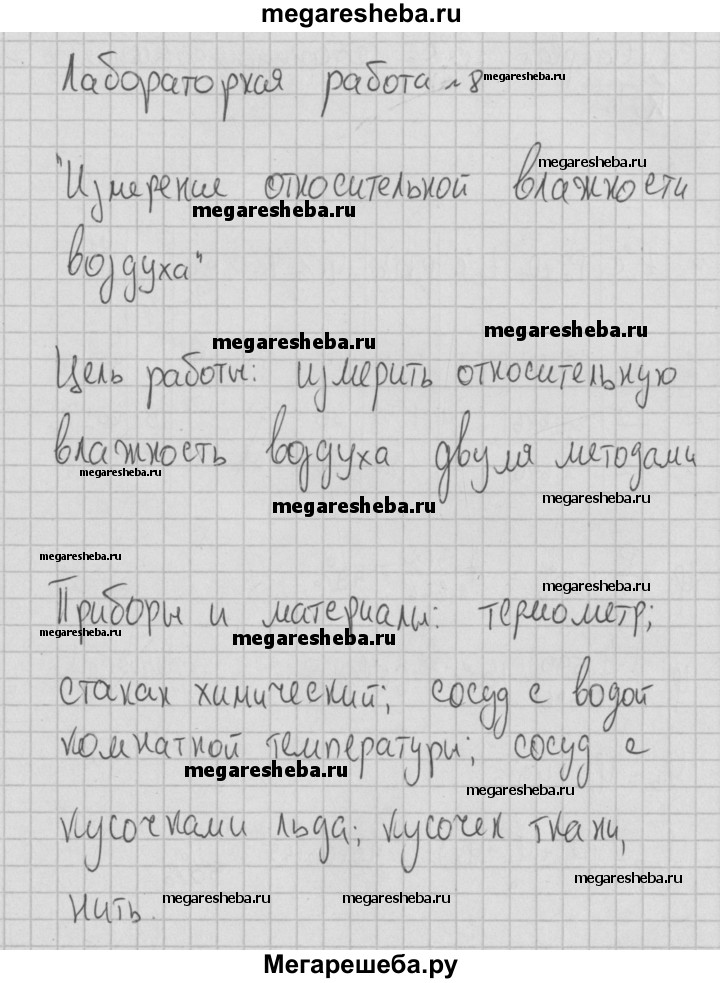 megaresheba.ru
Лабораторная работа №8 megaresheba.ru
megaresheba.ru
"Измерение относительной влажности
megaresheba.ru
воздуха"
megaresheba.ru megaresheba.ru
Цель работы: измерить относительную
влажность воздуха двумя методами
megaresheba.ru
megaresheba.ru megaresheba.ru
megaresheba.ru
megaresheba.ru
Приборы и материалы: термометр;
megaresheba.ru megaresheba.ru
стакан химический; сосуд с водой
комнатной температуры; сосуд с
megaresheba.ru
megaresheba.ru
кусочками льда; кусочек ткани,
megaresheba.ru
нить. megaresheba.ru megaresheba.ru
Мегарешеба.ру